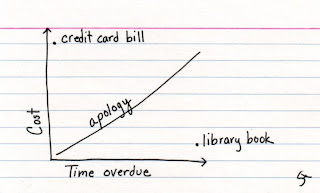 credit card bill
apology
Cost
library book
Time overdue